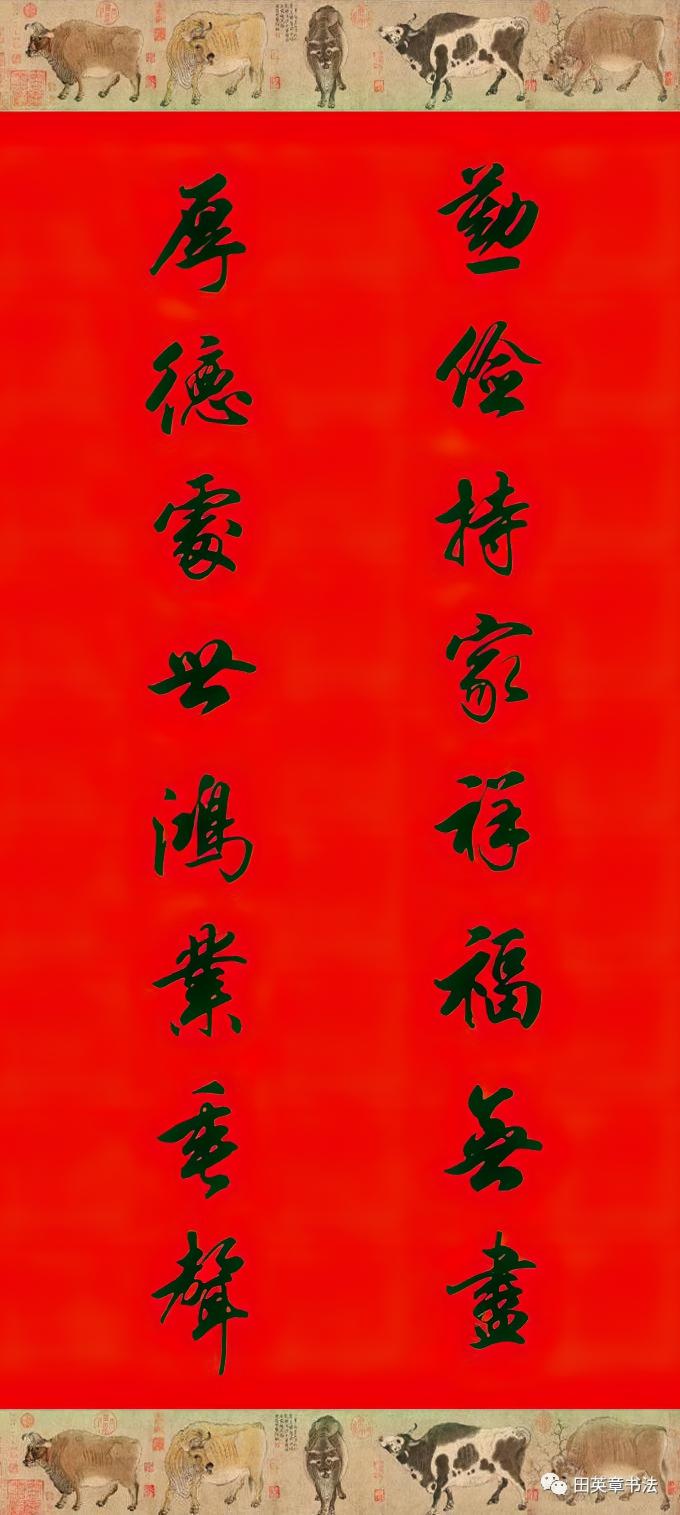 勤儉持家祥福無盡
厚德處世鴻業垂聲
田英章书法